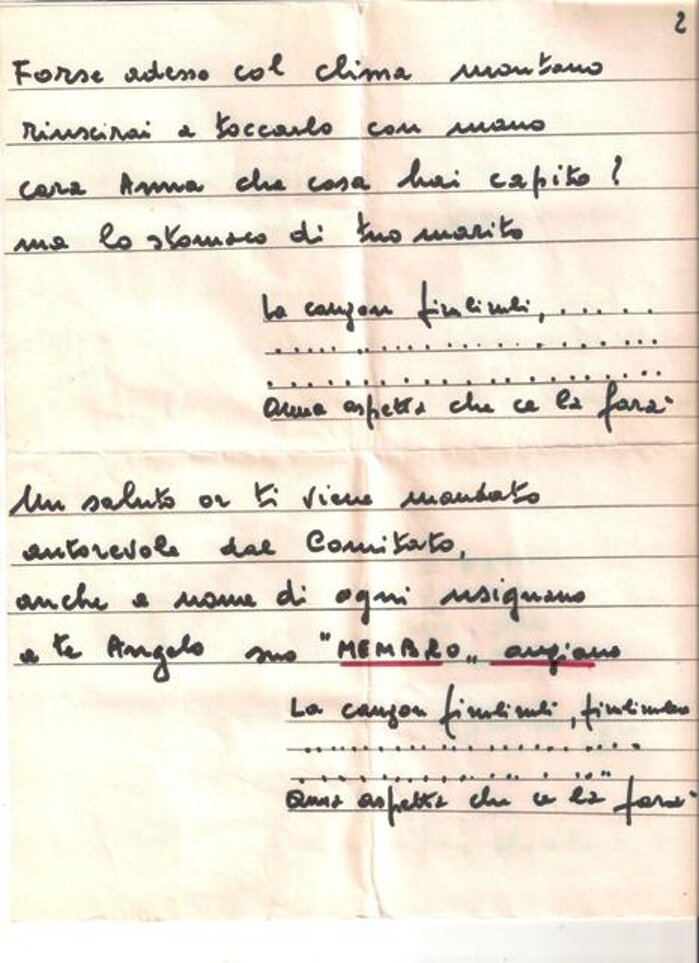 2
Forse adesso col clima montano
riuscirai a toccarlo con mano
cara Anna che cosa hai capito?
ma lo stomaco di tuo marito
La canzon finlinli, . . . . .
. . . . . . . . . . . . . . . . . .
. . . . . . . . . . . . . . . . . .
Anna aspetta che ce la farà
Un saluto or ti viene mandato
autorevole dal Comitato,
anche a nome di ogni usignano
a te Angelo suo "MEMBRO„ anziano
La canzon finlinli, finlinlero
. . . . . . . . . . . . . . . . . .
. . . . . . . . . . . . . . . . "
Anna aspetta che ce la farà